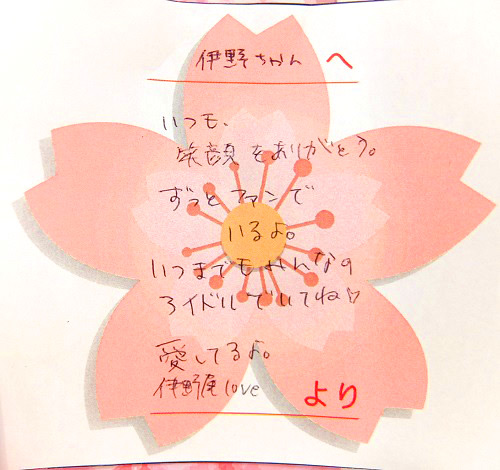 伊野ちゃん へ
いつも、
笑顔をありがとう。
ずっとファンで
いるよ。
いつまでもみんなの
アイドルでいてね♡
愛してるよ。
伊野尾love より